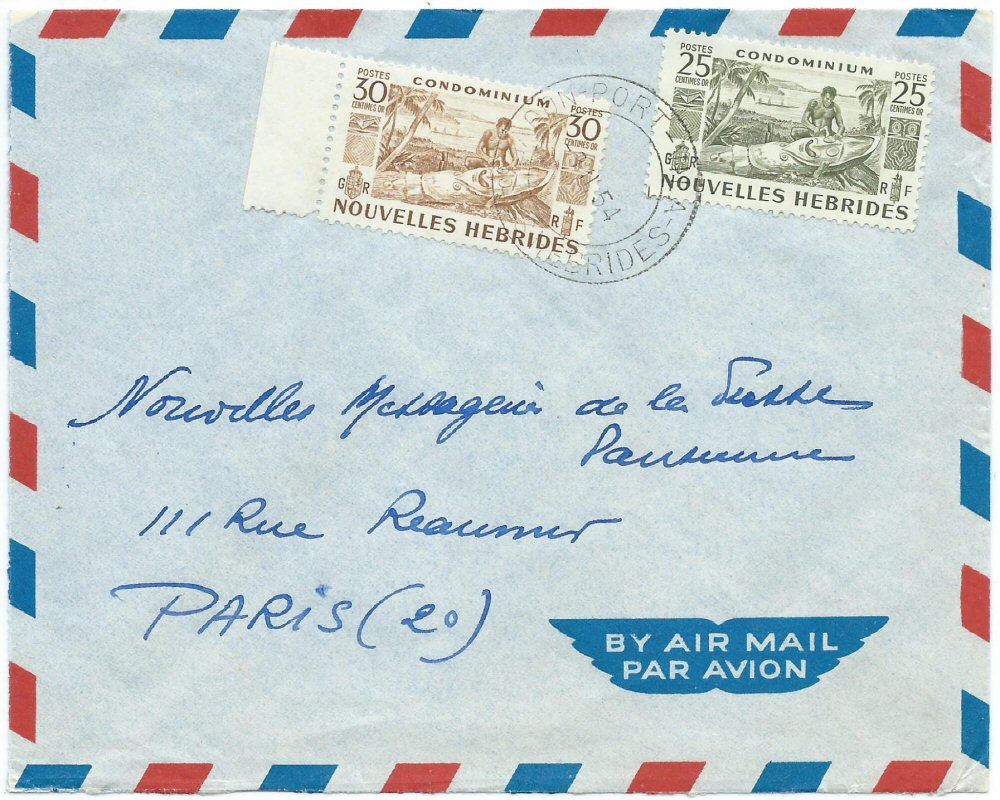 POSTES
30
CENTIMES OR
CONDOMINIUM
POSTES
30
CENTIMES OR
G R
R F
NOUVELLES HEBRIDES
POSTES
25
CENTIMES OR
CONDOMINIUM
POSTES
25
CENTIMES OR
G R
R F
NOUVELLES HEBRIDES
PORT
54
HEBRIDES
Nouvelles Messageries de la Presse
Parisienne
111 Rue Reaumur
PARIS (2º)
BY AIR MAIL
PAR AVION